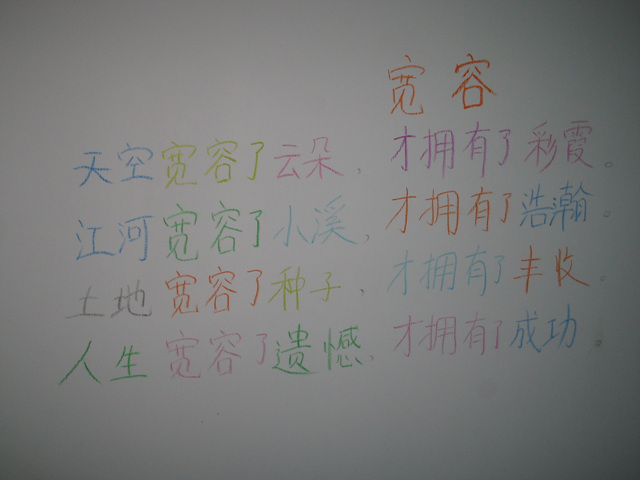 宽容
天空宽容了云朵，才拥有了彩霞。
江河宽容了小溪，才拥有了浩瀚。
土地宽容了种子，才拥有了丰收。
人生宽容了遗憾，才拥有了成功。